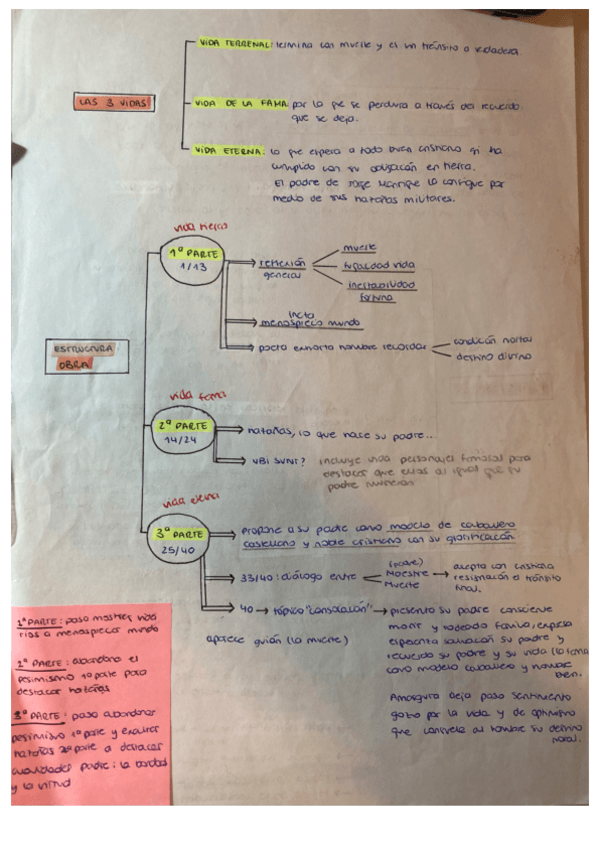 LAS 3 VIDAS
VIDA TERRENAL: termina con muerte y es un tránsito a verdadera.
VIDA DE LA FAMA: por lo que se perdura a través del recuerdo
que se deja.
VIDA ETERNA: lo que espera a todo buen cristiano si ha
cumplido con su obligación en tierra.
El padre de Jorge Manrique lo consigue por
medio de sus hazañas militares.
ESTRUCTURA
OBRA
vida
1ª PARTE
1/13
reflexión
general
muerte
fugacidad vida
inestabilidad
fortuna
menosprecio mundo
poeta exhorta hombre recordar
condición mortal
destino divino
vida fama
2ª PARTE
14/24
hazañas, lo que hace su padre...
UBI SUNT?
incluye vida personajes famosos para
destacar que ellos al igual que su
padre murieron
vida eterna
3ª PARTE
25/40
propone a su padre como modelo de caballero
castellano y noble cristiano con su glorificación
33/40: diálogo entre
(padre)
Maestre
Muerte
acepta con cristiana
resignación el tránsito
final.
40 → tópico "consolación" → presenta su padre consciente
morir y rodeado familia, expresa
esperanza salvación su padre y
recuerdo su padre y su vida (lo toma
como modelo caballero y hombre
bien.
aparece guión (la muerte)
Amargura deja paso sentimiento
gozo por la vida y de optimismo
que consuela al hombre su destino
1ª PARTE: pasa mostrar vida
a menospreciar mundo
2ª PARTE: abandona el
pesimismo 1ª parte para
destacar hazañas
3ª PARTE: pasa abandonar
pesimismo 1ª parte y exaltar
hazañas 2ª parte a destacar
cualidades padre: la bondad
y la virtud